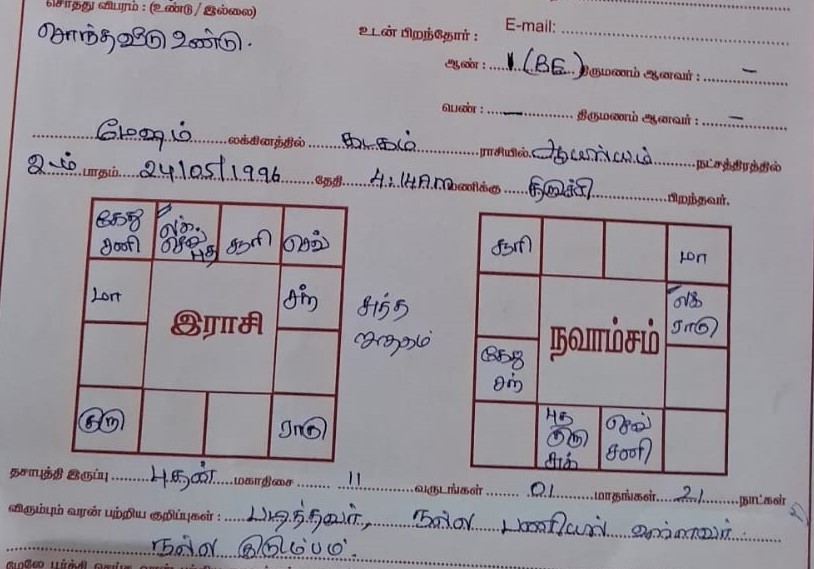 சொத்து விபரம் : (உண்டு / இல்லை)
சொந்த வீடு உண்டு.
E-mail:
உடன் பிறந்தோர் :
ஆண் : 1 (BE) திருமணம் ஆனவர் : –
பெண் : – திருமணம் ஆனவர் : –
மேஷம் லக்கினத்தில் கடகம் ராசியில் ஆயில்யம் நட்சத்திரத்தில்
2-ம் பாதம் 24/05/1996 தேதி 4.14AM மணிக்கு திருச்சி பிறந்தவர்.
கேது சனி
லக். செவ் புத
சூரி
மா
சந்
இராசி
குரு
ராகு
சுத்த ஜாதகம்
சூரி
மா
லக் ராகு
நவாம்சம்
கேது சந்
புத குரு சுக்
செவ் சனி
தசாபுத்தி இருப்பு புதன் மகாதிசை 11 வருடங்கள் 01 மாதங்கள் 21 நாட்கள்
விரும்பும் வரன் பற்றிய குறிப்புகள் : படித்தவர், நல்ல பணியில் உள்ளவர்.
நல்ல குடும்பம்.